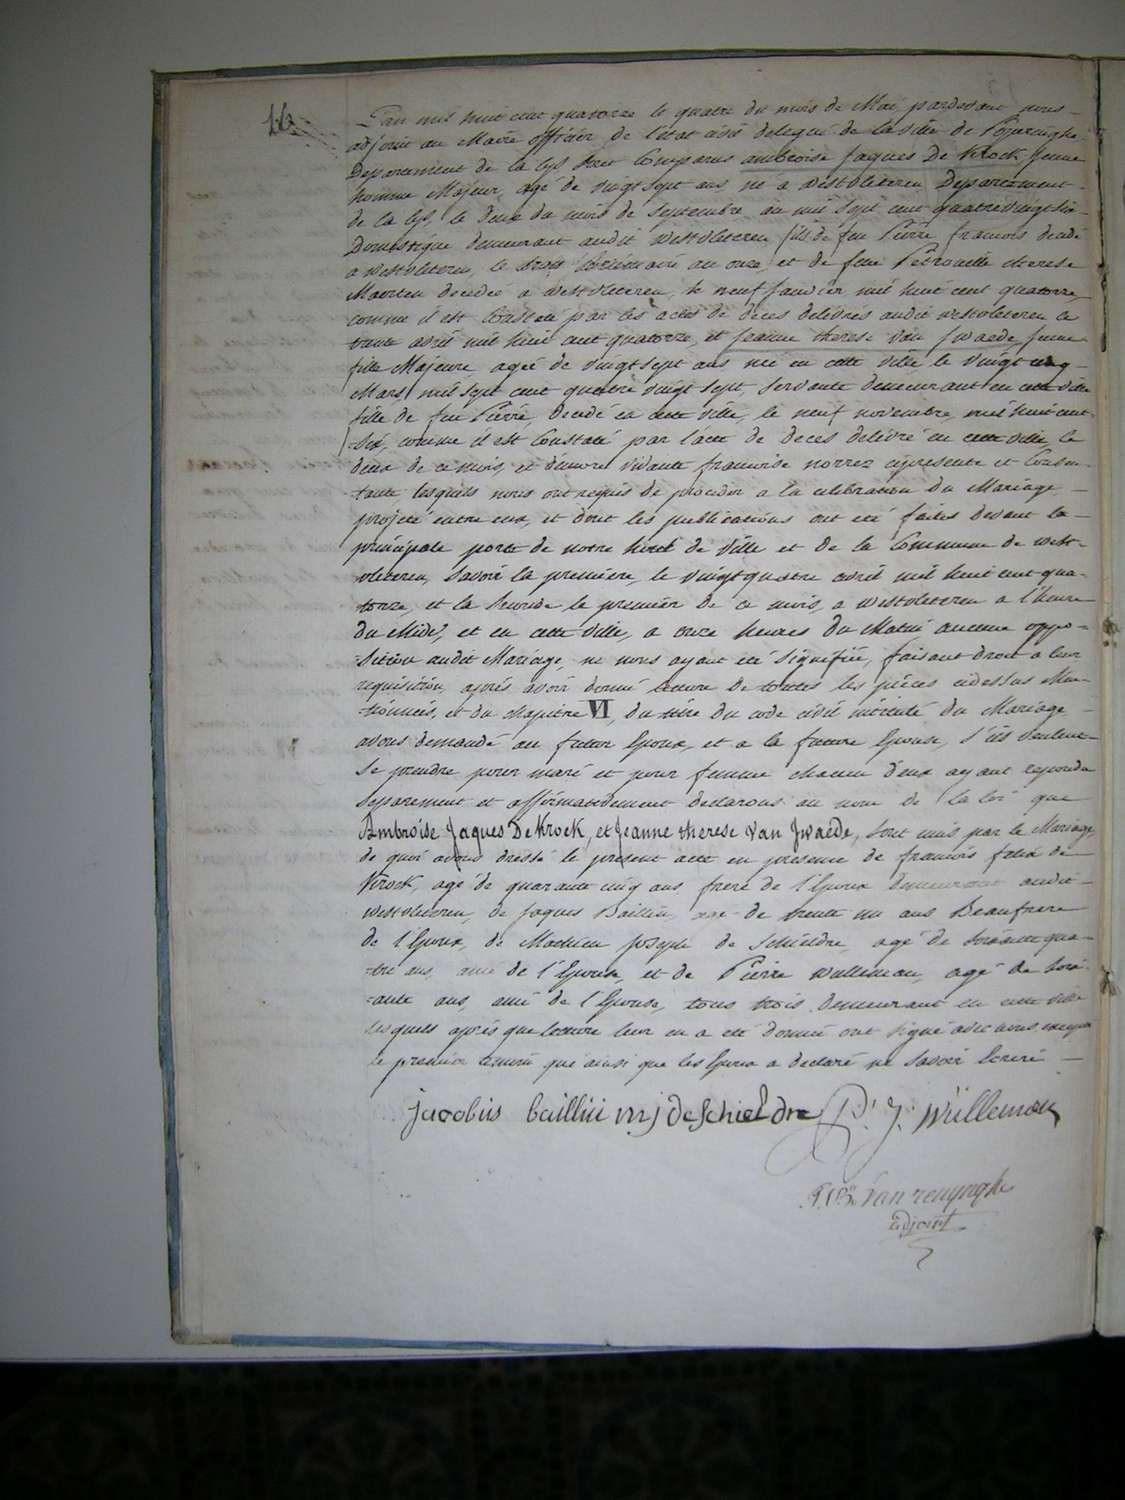 16
L'an mil huit cent quatorze le quatre du mois de Mai, pardevant nous
adjoint au Maire officier de l'état civil delegué de la ville de Poperinghe
Departement de la lys sont Comparus ambroise Jaques De Krock, jeune
homme Majeur, agé de vingt sept ans né a westvleteren Departement
de la lys, le deux du mois de septembre an mil sept cent quatrevingt six
Domestique demeurant audit westvleteren fils de feu Pierre francois decedé
a westvleteren, le trois an onze, et de feue Petronille therese
Maerten decedée a westvleteren, le neuf Janvier mil huit cent quatorze
comme il est Constaté par les actes de deces delivrés audit westvleteren le
trente avril mil huit cent quatorze, et Jeanne therese Van Zwaede jeune
fille Majeure agée de vingt sept ans née en cette ville le vingt cinq
Mars mil sept cent quatre vingt sept, servante demeurant en cette ville
fille de feu Pierre, decedé en cette ville, le neuf novembre, mil huit cent
six, comme il est Constaté par l'acte de deces delivré en cette ville, le
deux de ce mois, et d'encore vivante francoise norrez cipresente et Consen-
tante lesquels nous ont requis de proceder a la celebration du Mariage
projeté entre eux, et dont les publications ont été faites devant la
principale porte de notre hotel de ville et de la Commune de west-
vleteren, Savoir la premiere, le vingt quatre avril mil huit cent qua-
torze, et la seconde le premier de ce mois, a westvleteren a l'heure
du Midi, et en cette ville, a onze heures du Matin aucune oppo-
sition audit Mariage, ne nous ayant été signifiée, faisant droit a leur
requisition, aprés avoir donné lecture de toutes les pièces cidessus Men-
tionnées, et du chapitre VI du titre du code civil intitulé du Mariage
avons demandé au futur Epoux, et a la future Epouse, s'ils veulent
se prendre pour mari et pour femme chacun d'eux ayant repondu
separement et affirmativement declarons au nom de la loi que
Ambroise Jaques De Krock, et Jeanne therese Van Zwaede, sont unis par le Mariage,
de quoi avons dressé le present acte en presence de francois felix de
Krock, agé de quarante cinq ans frere de l'Epoux demeurant audit
westvleteren, de Jaques Baillin, agé de trente un ans Beaufrere
de l'Epoux, de Mathieu Joseph de Schieldre, agé de soixante qua-
tre ans, ami de l'Epouse et de Pierre wulleman, agé de soix-
ante ans, ami de l'Epouse, tous trois demeurant en cette ville
lesquels aprés que lecture leur en a été donnée ont signé avec nous excepté
le premier temoin que ainsi que les Epoux a declaré ne savoir Ecrire
jacobus baillin mj deschieldre P: J: Wülleman
Van renynghe
adjoint